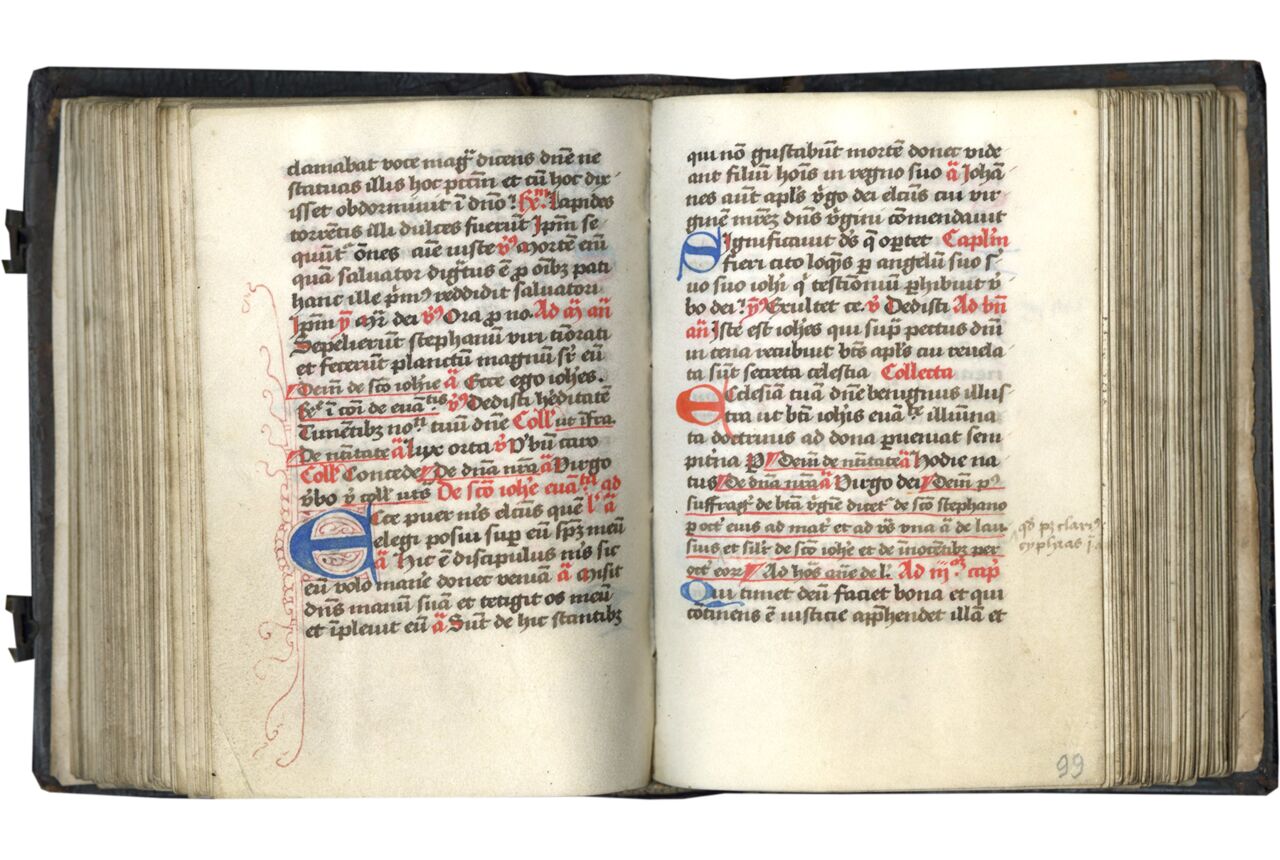 clamabat voce mag̃ dicens dñe ne
statuas illis hoc pccm̃ et cũ hoc dix
isset obdormiuit ĩ dño Lapides
torrẽtis illi dulces fuerũt Ip̃m se
quũt õnes aĩe iuste v̓ Mortẽ eĩ
quã saluator digtus ẽ p oĩbꝫ pati
hanc ille p̃mꝰ reddidit saluatori
Ip̃m dei v̓ Ora p no. Ad añ
Sepelierũt stephanũ viri tiõrati
et fecerũt planctũ magnũ sr̃ eũ
Deĩn de sc̃o ioh̃ie ã Ecce ego ioh̃es.
ĩ cõi de euãtis v̓ Dedisti h̓editatẽ
Timẽtibꝫ tuũ dñe Coll̃ ut ĩfra.
De nĩtitate ã Lux orta v̓ V̓bũ caro
Coll̃ Concede De dña nr̃a ã Virgo
v̓bo v̓ coll̃ De sc̃o ioh̃e euãta ad
Ecce puer mꝰs elcũs quẽ lꝰ ã
elegi posui sup̱ eũ sp̃ꝫ meũ
ã Hic ẽ discipulus mꝰs sic
eũ volo mane᷑ donec veniã ã Misit
dñs manũ suã et tetigit os meũ
et ĩpleuit eũ ã Sũt de hic stantibꝫ
qui nõ gustabũt mortẽ donec vide
ant filiũ hoĩs in regno suo ã Johã
nes aũt apl̃s v̓go dei elcũs cui vir
ginẽ mr̃eꝫ dñs v̓gini cõmendauit
Significauit dꝰs q̃ oꝑtet Capl̃m
fieri cito loqꝰs ꝑ angelũ suo s̓
uo suo ioh̃i qꝰ testioniũ ꝑhibuit v̓
bo dei Exultet ce. v̓ Dedisti Ad bñ
añ Iste est ioh̃es qui sup̱ pectus dñi
in cena recubuit bt̃s apl̃s cui reuela
ta sũt secreta celestia Collecta
Ecclesiã tuã dñe benignus illus
tra ut bt̃i ioh̃is euãte illumĩa
ta doctrinis ad dona ꝑueniat sem
pit̓na P Deĩn de nĩtitate ã Hodie na
tus De dña nr̃a ã Virgo dei Deĩn pꝰ
suffrag̓ de bt̃a v̓gĩe dicet̓ de sc̃o stephano
ꝑ oct̓ eius ad mat̓ et ad vꝰs vna ã de lau
sius et sil̓r de sc̃o ioh̃e et de ĩnocẽtibꝫ per
oct̓ eorꝝ Ad hoꝰs añe de lꝰ. Ad iij.am cap̓
Qui timet deũ faciet bona et qui
cõtinens ẽ iusticie app̃hendet illã et
99